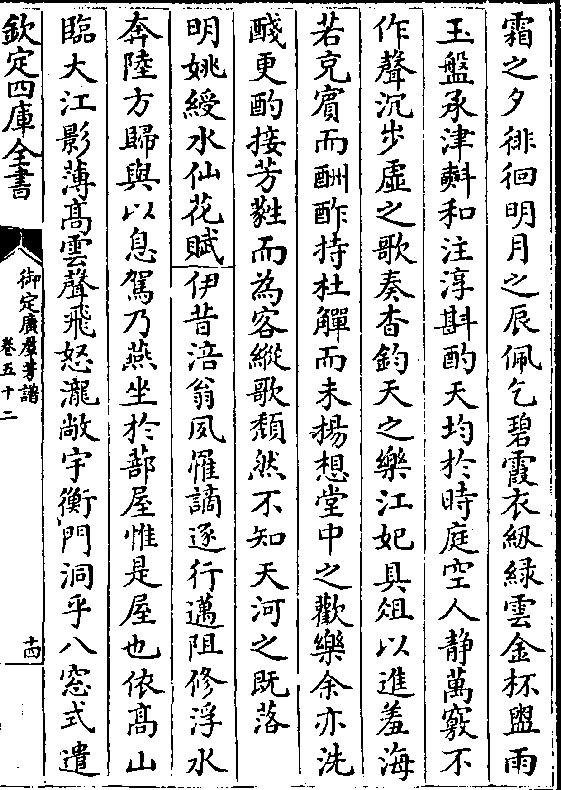 霜之夕徘徊明月之辰佩乞碧霞衣紉緑雲金杯盥雨
玉盤承津㪺和注淳斟酌天均於時庭空人静萬竅不
作聲沉步虚之歌奏杳鈞天之樂江妃具俎以進羞海
若克賔而酬酢持杜觶而未揚想堂中之歡樂余亦洗
醆更酌接芳蕤而為客縱歌頽然不知天河之既落
明姚綬水仙花賦伊昔涪翁夙罹謫逐行邁阻修浮水
奔陸方歸與以息駕乃燕坐於蔀屋惟是屋也依髙山
臨大江影薄髙雲聲飛怒瀧敞宇衡門洞乎八窓式遣
欽定四庫全書
御定廣羣芳譜
卷五十二
十四